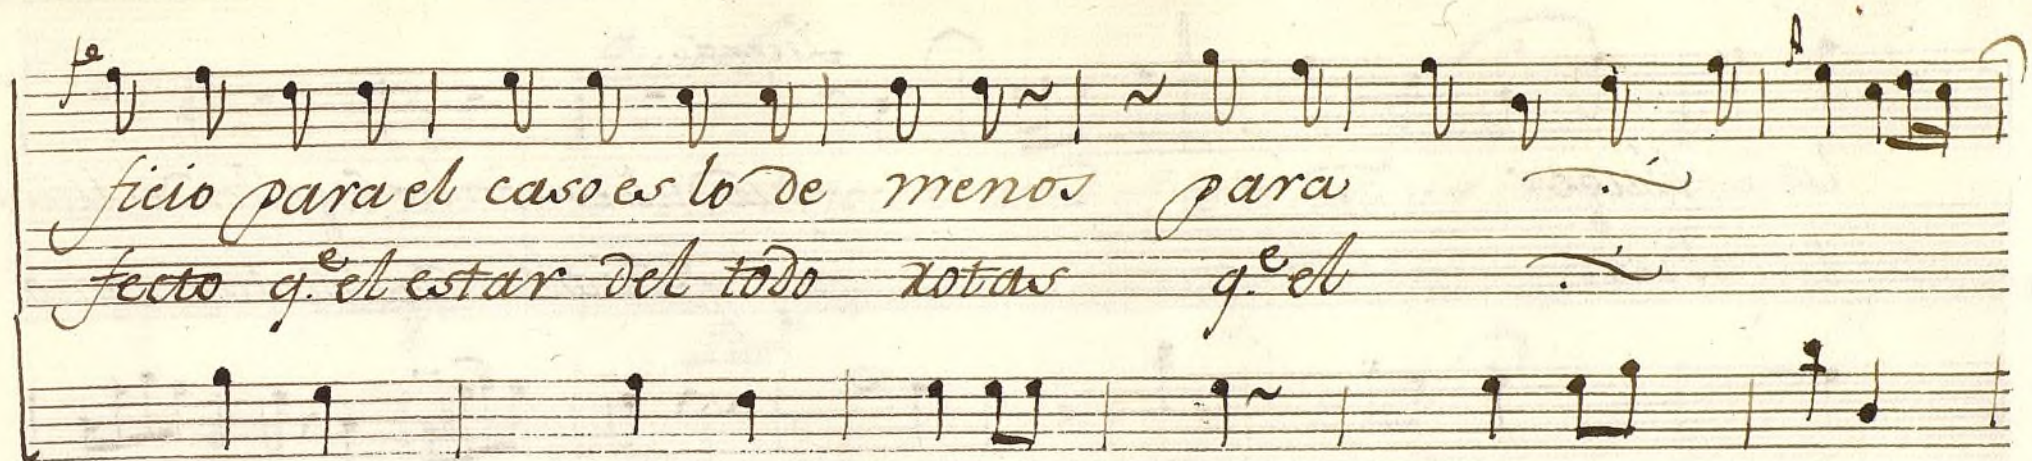 fe
ficio para el caso es lo de menos para
fecto q.e el estar del todo rotas q.e el